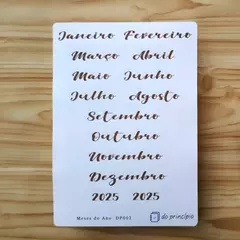 Janeiro Fevereiro
Março Abril
Maio Junho
Julho Agosto
Setembro
Outubro
Novembro
Dezembro
2025 2025
Meses do Ano DP002
do princípio